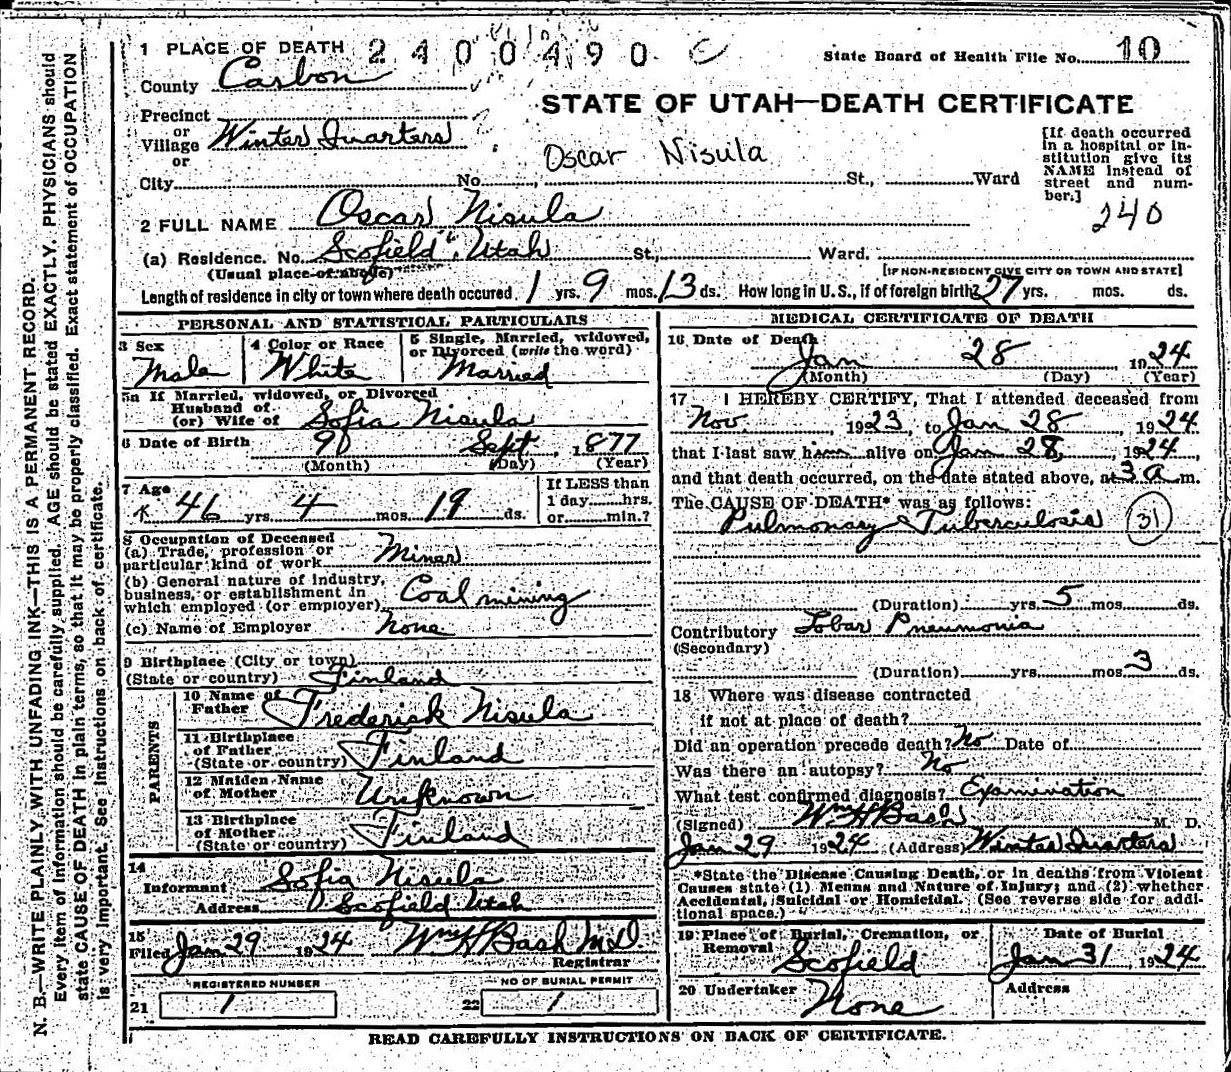 1 PLACE OF DEATH 2400490 C State Board of Health File No. 10
County Carbon
STATE OF UTAH—DEATH CERTIFICATE
Precinct
or
Village Winter Quarters
or
Oscar Nisula
City No. St., Ward
[If death occurred
in a hospital or in-
stitution give its
NAME instead of
street and num-
ber.]
240
2 FULL NAME Oscar Nisula
(a) Residence. No. Scofield, Utah St., Ward.
(Usual place of abode) [IF NON-RESIDENT GIVE CITY OR TOWN AND STATE]
Length of residence in city or town where death occured 1 yrs. 9 mos. 13 ds. How long in U.S., if of foreign birth? 27 yrs. mos. ds.
PERSONAL AND STATISTICAL PARTICULARS
3 Sex
Male
4 Color or Race
White
5 Single, Married, widowed,
or Divorced (write the word)
Married
5a If Married, widowed, or Divorced
Husband of
(or) Wife of Sofia Nisula
6 Date of Birth 9 Sept, 1877
(Month) (Day) (Year)
7 Age 46 yrs. 4 mos. 19 ds.
If LESS than
1 day hrs.
or min.?
8 Occupation of Deceased
(a) Trade, profession or
particular kind of work Miner
(b) General nature of industry,
business, or establishment in
which employed (or employer) Coal mining
(c) Name of Employer None
9 Birthplace (City or town)
(State or country) Finland
PARENTS
10 Name of
Father Frederick Nisula
11 Birthplace
of Father
(State or country) Finland
12 Maiden Name
of Mother Unknown
13 Birthplace
of Mother
(State or country) Finland
14
Informant Sofia Nisula
Address Scofield Utah
15
Filed Jan 29 1924 Wm H Bash M D
Registrar
REGISTERED NUMBER
21 1
NO OF BURIAL PERMIT
22 1
MEDICAL CERTIFICATE OF DEATH
16 Date of Death
Jan 28 1924
(Month) (Day) (Year)
17 I HEREBY CERTIFY, That I attended deceased from
Nov. 1923, to Jan 28, 1924
that I last saw him alive on Jan 28, 1924,
and that death occurred, on the date stated above, at 3 a m.
The CAUSE OF DEATH* was as follows:
Pulmonary Tuberculosis 31
(Duration) yrs. 5 mos. ds.
Contributory Lobar Pneumonia
(Secondary)
(Duration) yrs. mos. 3 ds.
18 Where was disease contracted
if not at place of death?
Did an operation precede death? No Date of
Was there an autopsy? No
What test confirmed diagnosis? Examination
(Signed) Wm H Bash M. D.
Jan 29 1924 (Address) Winter Quarters
*State the Disease Causing Death, or in deaths from Violent
Causes state (1) Menns and Nature of Injury; and (2) whether
Accidental, Suicidal or Homicidal. (See reverse side for addi-
tional space.)
19 Place of Burial, Cremation, or
Removal
Scofield
Date of Burial
Jan 31, 1924
20 Undertaker
None
Address
READ CAREFULLY INSTRUCTIONS ON BACK OF CERTIFICATE.
N. B.—WRITE PLAINLY WITH UNFADING INK—THIS IS A PERMANENT RECORD.
Every item of information should be carefully supplied. AGE should be stated EXACTLY. PHYSICIANS should
state CAUSE OF DEATH in plain terms, so that it may be properly classified. Exact statement of OCCUPATION
is very important. See instructions on back of certificate.